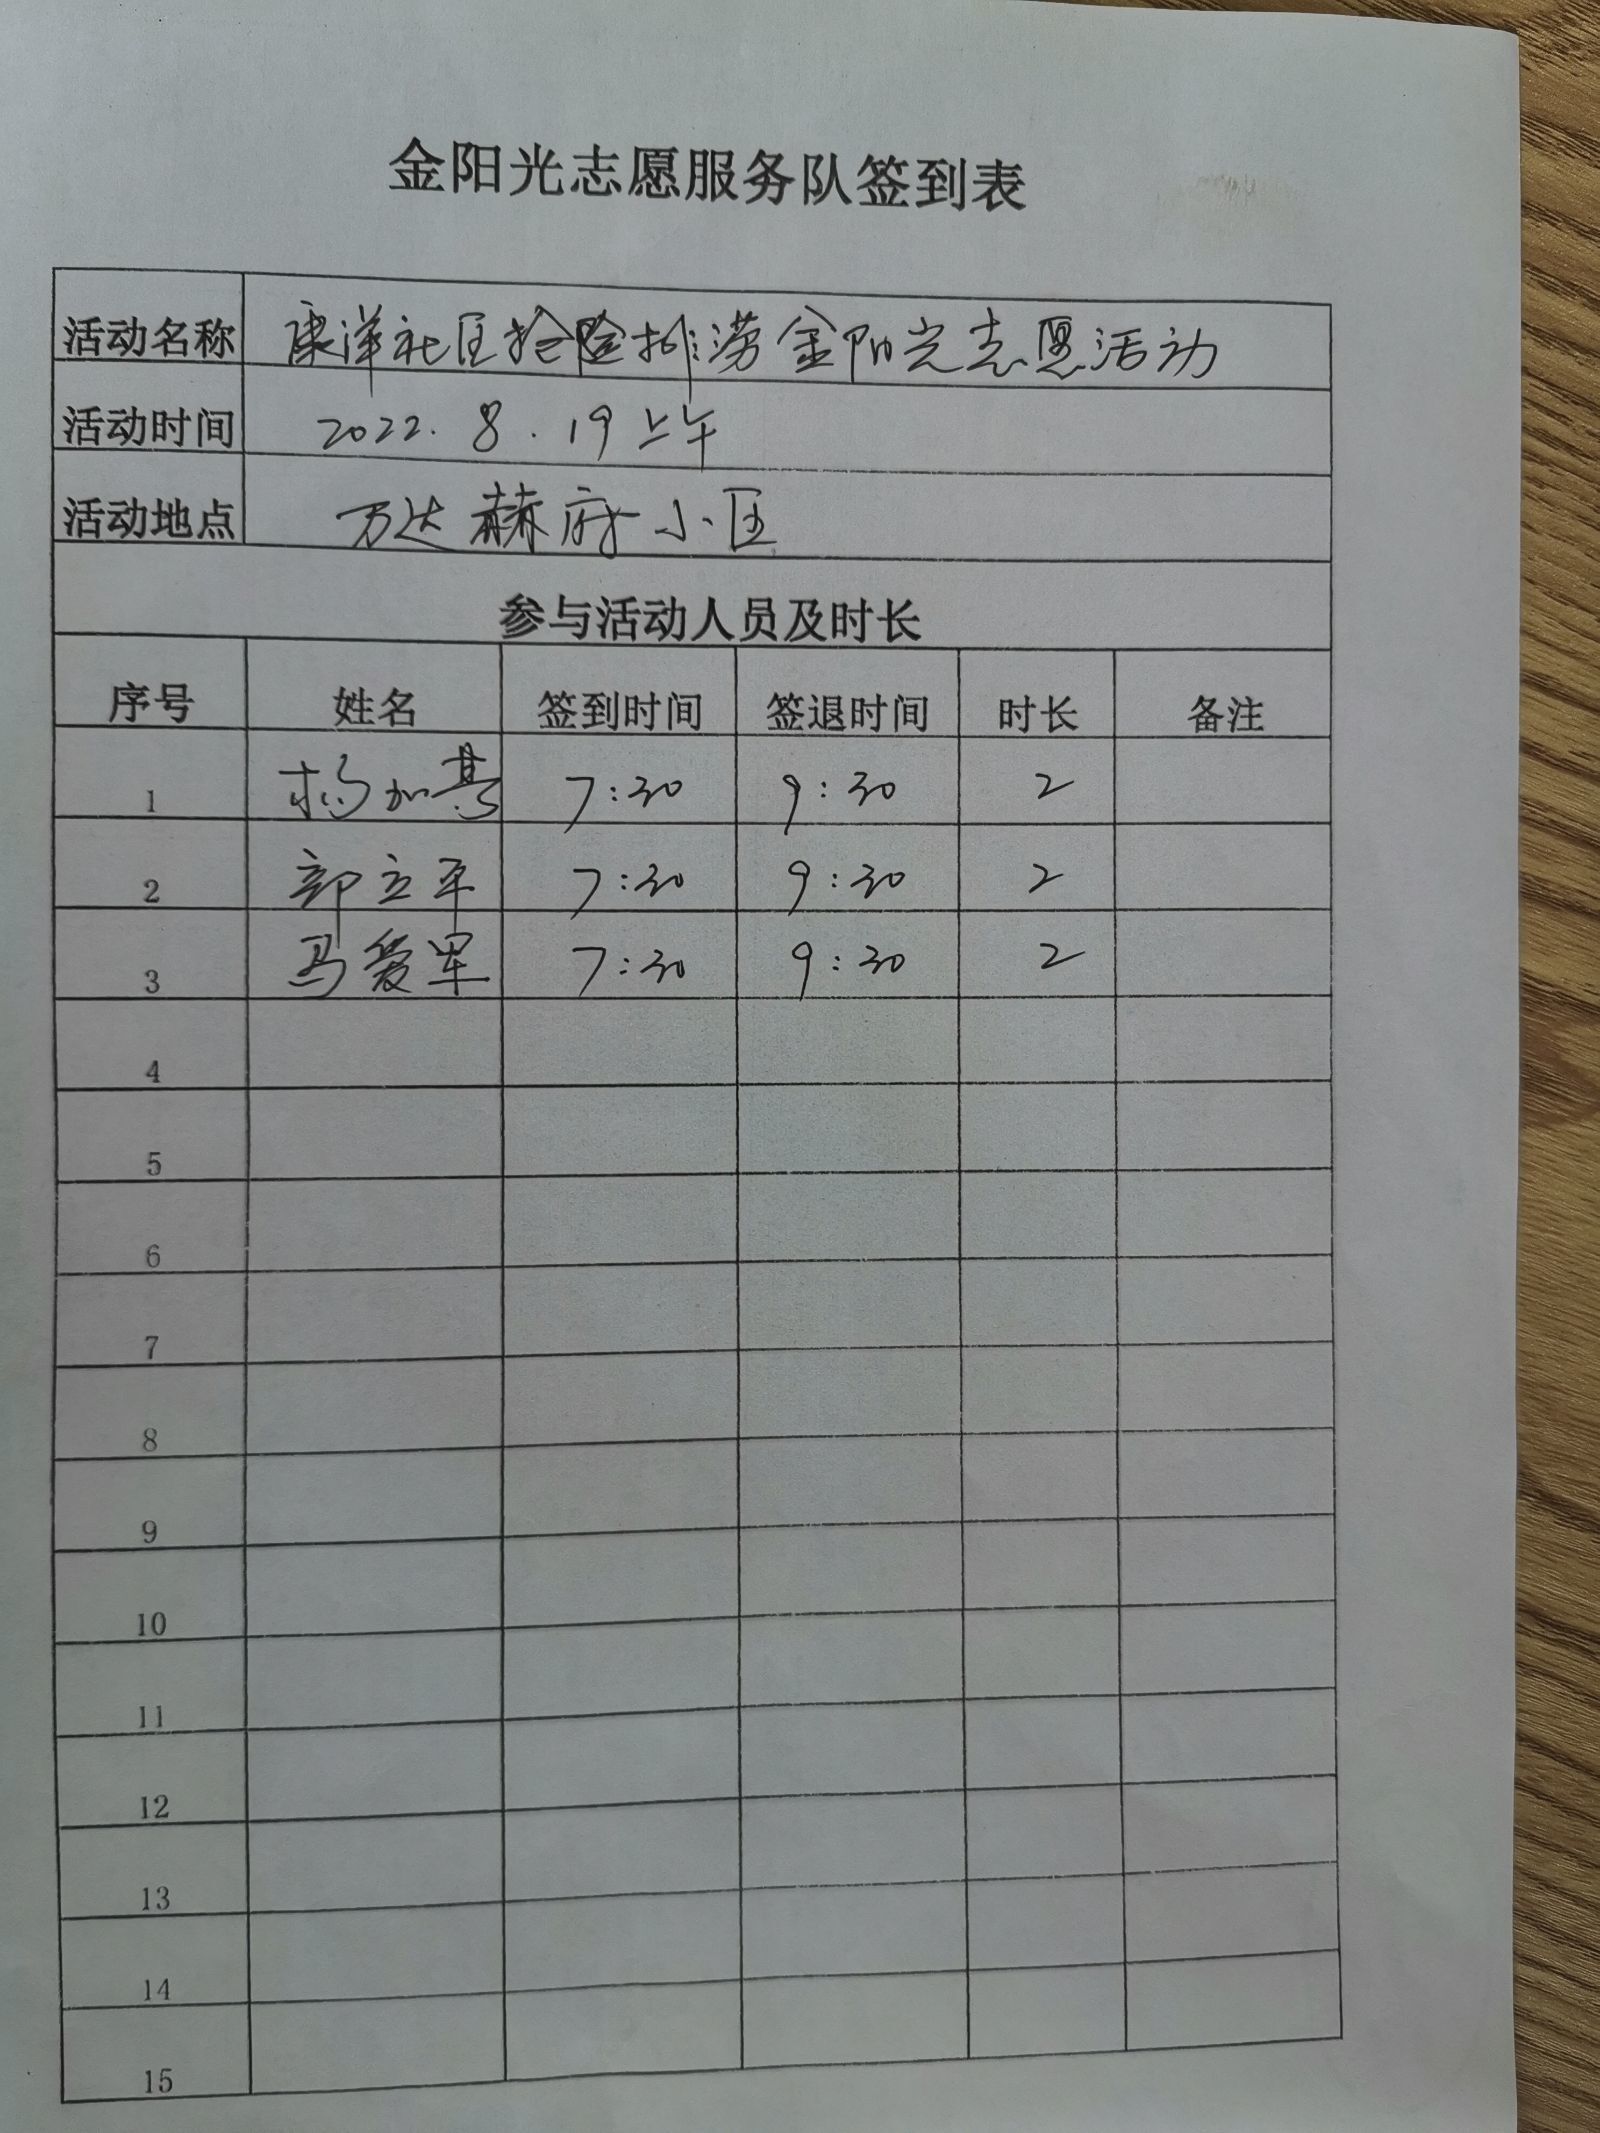 金阳光志愿服务队签到表
活动名称 康洋社区抢险排涝金阳光志愿活动
活动时间 2022.8.19上午
活动地点 万达赫府小区
参与活动人员及时长
序号 姓名 签到时间 签退时间 时长 备注
1 杨加基 7:30 9:30 2
2 郭立平 7:30 9:30 2
3 马爱军 7:30 9:30 2
4
5
6
7
8
9
10
11
12
13
14
15